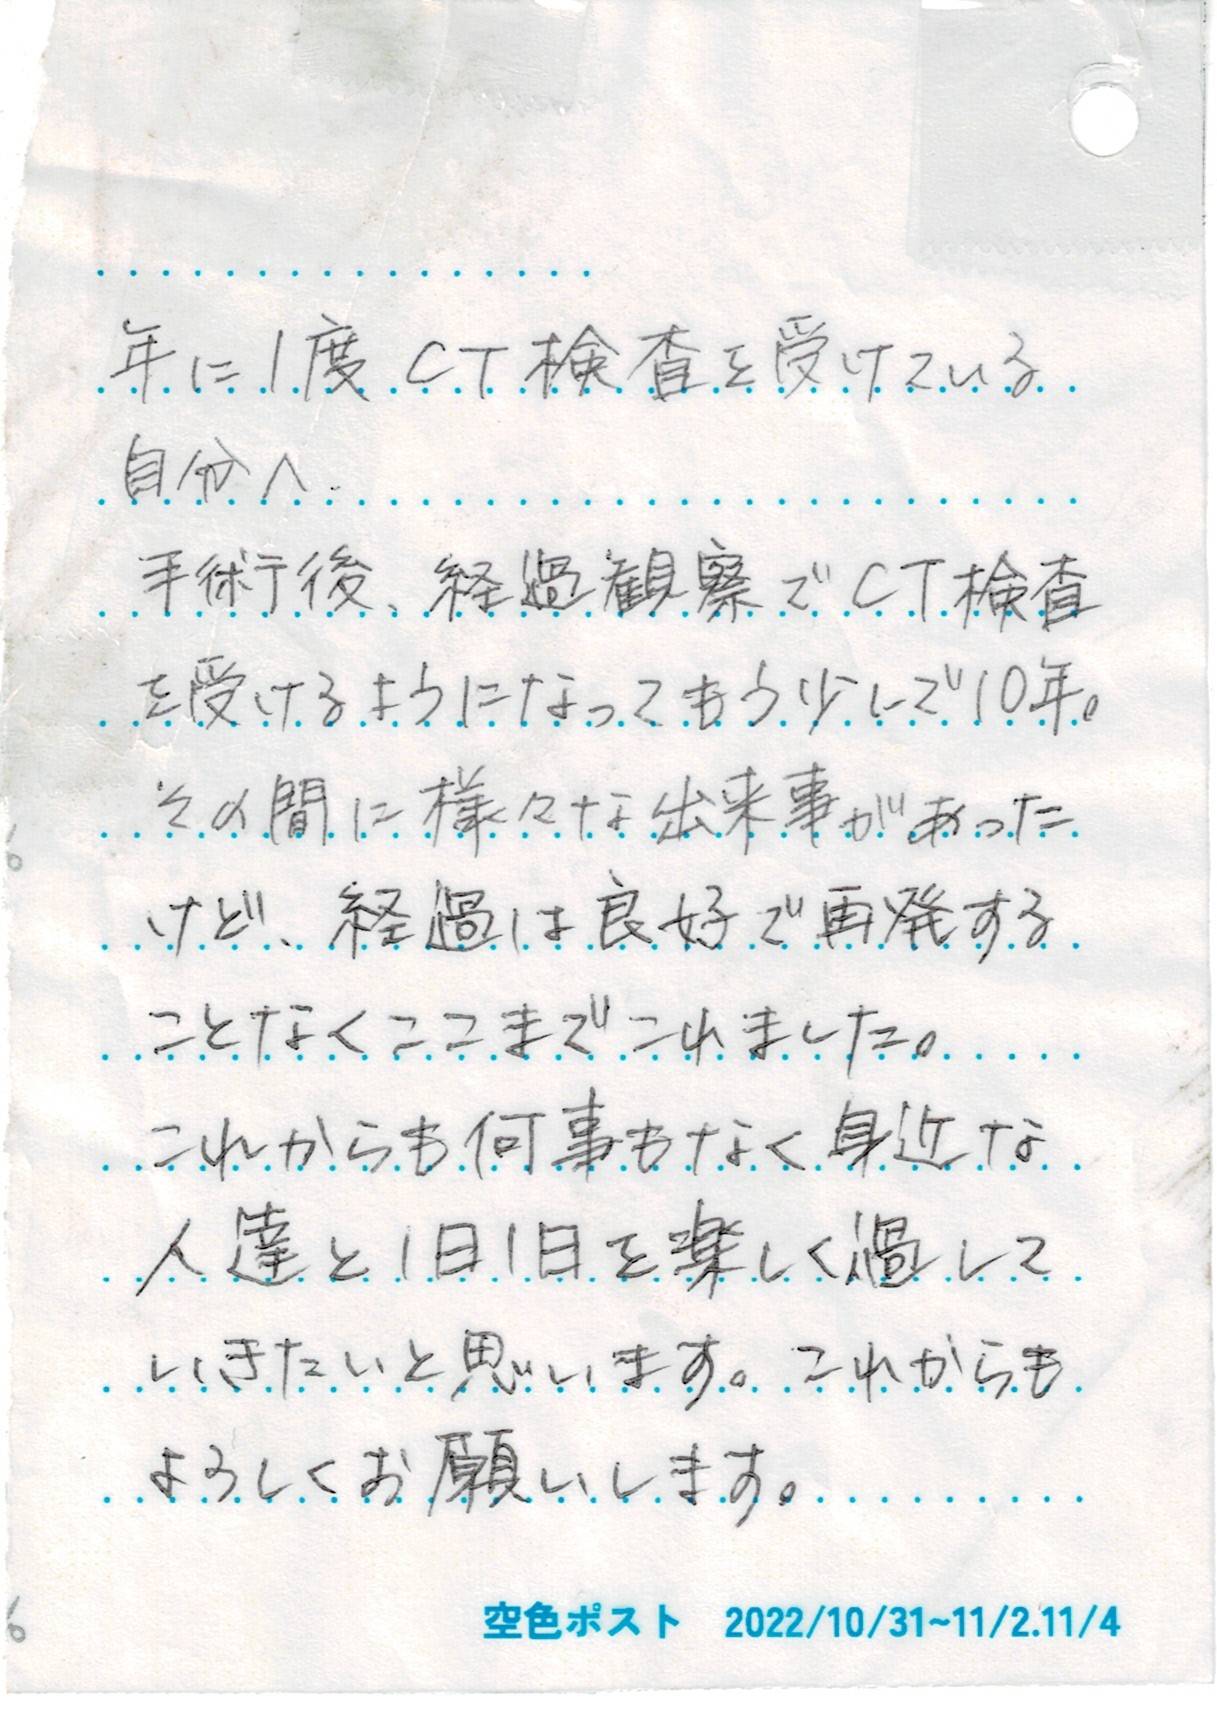 年に1度CT検査を受けている
自分へ
手術後、経過観察でCT検査
を受けるようになってもう少しで10年。
その間に様々な出来事があった
けど、経過は良好で再発する
ことなくここまでこれました。
これからも何事もなく身近な
人達と1日1日を楽しく過して
いきたいと思います。これからも
よろしくお願いします。
空色ポスト 2022/10/31~11/2.11/4